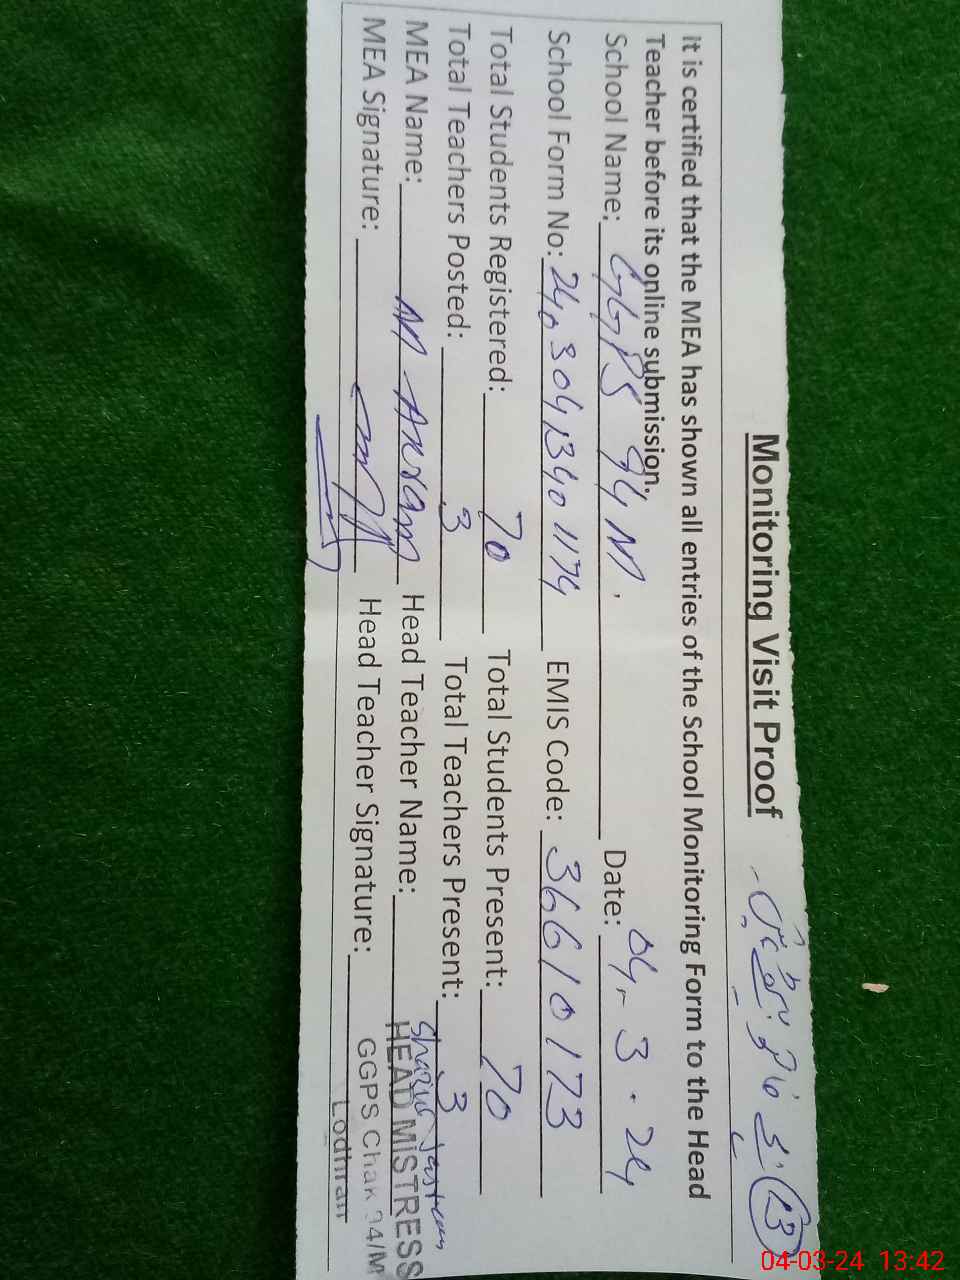 Monitoring Visit Proof
13
It is certified that the MEA has shown all entries of the School Monitoring Form to the Head
Teacher before its online submission.
School Name: GGPS 94 M. Date: 04- 3 . 24
School Form No: EMIS Code: 36610173
Total Students Registered: 70 Total Students Present: 70
Total Teachers Posted: 3 Total Teachers Present: 3
MEA Name: M Akram Head Teacher Name:
HEAD MISTRESS
MEA Signature: Head Teacher Signature:
GGPS Chak 94/M
Lodhran
04-03-24 13:42